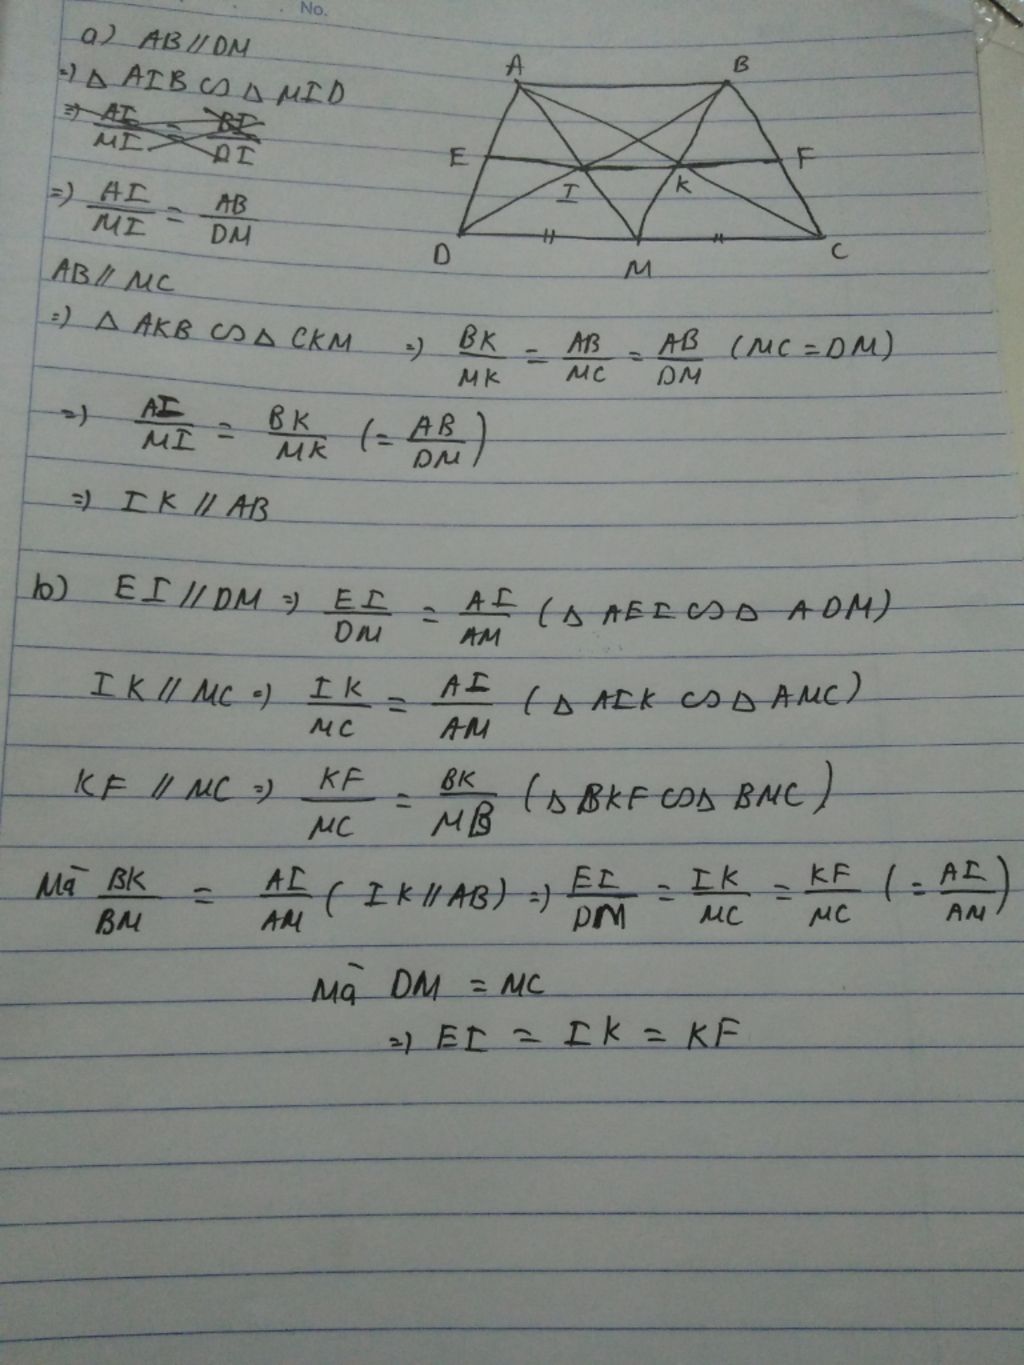 No.
a) AB // DM
=) Δ AIB ∽ Δ MID
=) AI/MI = BI/DI
=) AI/MI = AB/DM
AB // MC
=) Δ AKB ∽ Δ CKM =) BK/MK = AB/MC = AB/DM (MC = DM)
=) AI/MI = BK/MK (= AB/DM)
=) IK // AB
b) EI // DM =) EI/DM = AI/AM (Δ AEI ∽ Δ ADM)
IK // MC =) IK/MC = AI/AM (Δ AIK ∽ Δ AMC)
KF // MC =) KF/MC = BK/MB (Δ BKF ∽ Δ BMC)
Mà BK/BM = AI/AM (IK // AB) =) EI/DM = IK/MC = KF/MC (= AI/AM)
Mà DM = MC
=) EI = IK = KF
A B
E I K F
D M C